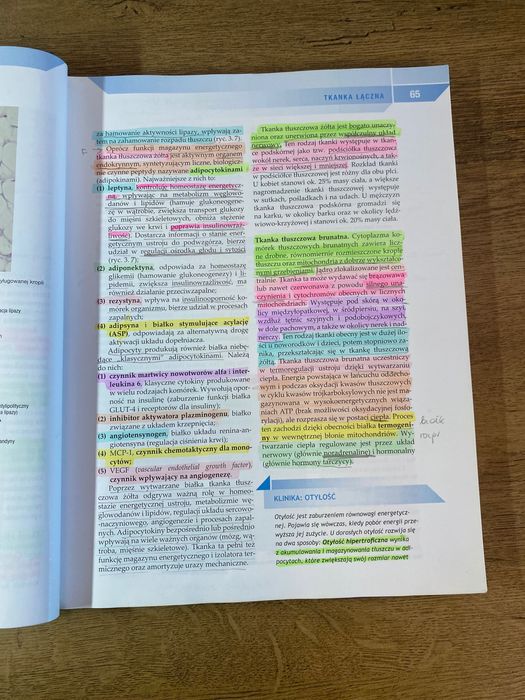 TKANKA ŁĄCZNA
65
za hamowanie aktywności lipazy, wpływają za-
tem na zahamowanie rozpadu tłuszczu (ryc. 3.7).
Oprócz funkcji magazynu energetycznego
tkanka tłuszczowa żółta jest aktywnym organem
endokrynnym, syntetyzującym liczne, biologicz-
nie czynne peptydy nazywane adipocytokinami
(adipokinami). Najważniejsze z nich to:
(1) leptyna, kontrolująca homeostazę energetycz-
ną, wpływając na metabolizm węglowo-
danów i lipidów (hamuje glukoneogene-
zę w wątrobie, zwiększa transport glukozy
do mięśni szkieletowych, obniża stężenie
glukozy we krwi i poprawia insulinowraż-
liwość). Dostarcza informacji o stanie ener-
getycznym ustroju do podwzgórza, bierze
udział w regulacji ośrodka głodu i sytości
(ryc. 3.7);
(2) adiponektyna, odpowiada za homeostazę
glikemii (hamowanie glukoneogenezy) i li-
pidemii, zwiększa insulinowrażliwość, ma
również działanie przeciwzapalne;
(3) rezystyna, wpływa na insulinooporność ko-
mórek organizmu, bierze udział w procesach
zapalnych;
(4) adipsyna i białko stymulujące acylację
(ASP), odpowiadają za alternatywną drogę
aktywacji układu dopełniacza.
Adipocyty produkują również białka niebę-
dące „klasycznymi” adipocytokinami. Należą
do nich:
(1) czynnik martwicy nowotworów alfa i inter-
leukina 6, klasyczne cytokiny produkowane
w wielu rodzajach komórek. Wywołują opor-
ność na insulinę (zaburzenie funkcji białka
GLUT-4 i receptorów dla insuliny);
(2) inhibitor aktywatora plazminogenu, białko
związane z układem krzepnięcia;
(3) angiotensynogen, białko układu renina-an-
giotensyna (regulacja ciśnienia krwi);
(4) MCP-1, czynnik chemotaktyczny dla mono-
cytów;
(5) VEGF (vascular endothelial growth factor),
czynnik wpływający na angiogenezę.
Poprzez wytwarzane białka tkanka tłusz-
czowa żółta odgrywa ważną rolę w homeo-
stazie energetycznej ustroju, metabolizmie wę-
glowodanów i lipidów, regulacji układu sercowo-
-naczyniowego, angiogenezie i procesach zapal-
nych. Adipocytokiny bezpośrednio lub pośrednio
wpływają na wiele ważnych organów (mózg, wą-
troba, mięśnie szkieletowe). Tkanka ta pełni też
funkcję magazynu energetycznego i izolatora ter-
micznego oraz amortyzuje urazy mechaniczne.
Tkanka tłuszczowa żółta jest bogato unaczy-
niona oraz unerwiona przez współczulny układ
nerwowy. Ten rodzaj tkanki występuje w tkan-
ce podskórnej jako tzw. podściółka tłuszczowa
wokół nerek, serca, naczyń krwionośnych, a tak-
że w sieci większej i mniejszej. Rozkład tkanki
w podściółce tłuszczowej jest różny dla obu płci.
U kobiet stanowi ok. 25% masy ciała, a większe
nagromadzenie tkanki tłuszczowej występuje
w sutkach, pośladkach i na udach. U mężczyzn
tkanka tłuszczowa podskórna gromadzi się
na karku, w okolicy barku oraz w okolicy lędź-
wiowo-krzyżowej i stanowi ok. 20% masy ciała.
Tkanka tłuszczowa brunatna. Cytoplazma ko-
mórek tłuszczowych brunatnych zawiera licz-
ne drobne, równomiernie rozmieszczone krople
tłuszczu oraz mitochondria z dobrze wykształco-
nymi grzebieniami. Jądro zlokalizowane jest cen-
tralnie. Tkanka ta może wydawać się brązowawa
lub nawet czerwonawa z powodu silnego una-
czynienia i cytochromów obecnych w licznych
mitochondriach. Występuje pod skórą w oko-
licy międzyłopatkowej, w śródpiersiu, na szyi,
wzdłuż tętnic szyjnych i podobojczykowych,
w dole pachowym, a także w okolicy nerek i nad-
nerczy. Ten rodzaj tkanki obecny jest w dużej ilo-
ści u noworodków i dzieci, potem stopniowo za-
nika, przekształcając się w tkankę tłuszczową
żółtą. Tkanka tłuszczowa brunatna uczestniczy
w termoregulacji ustroju dzięki wytwarzaniu
ciepła. Energia powstająca w łańcuchu oddecho-
wym i podczas oksydacji kwasów tłuszczowych
w cyklu kwasów trójkarboksylowych nie jest ma-
gazynowana w wysokoenergetycznych wiąza-
niach ATP (brak możliwości oksydacyjnej fosfo-
rylacji), ale rozprasza się w postaci ciepła. Proces
ten zachodzi dzięki obecności białka termogeni-
ny w wewnętrznej błonie mitochondriów. Wy-
twarzanie ciepła regulowane jest przez układ
nerwowy (głównie noradrenalinę) i hormonalny
(głównie hormony tarczycy).
KLINIKA: OTYŁOŚĆ
Otyłość jest zaburzeniem równowagi energetycz-
nej. Pojawia się wówczas, kiedy pobór energii prze-
wyższa jej zużycie. U dorosłych otyłość rozwija się
na dwa sposoby: Otyłość hipertroficzna wynika
z akumulowania i magazynowania tłuszczu w adi-
pocytach, które zwiększają swój rozmiar nawet